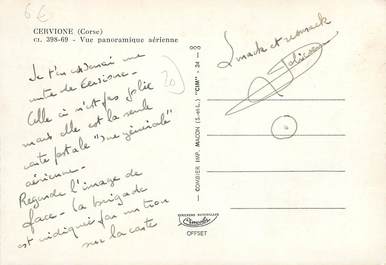 6€
CERVIONE (Corse)
CI. 398-69 - Vue panoramique aérienne
Je t'en
carte de Cervione -
Celle ci n'est pas jolie
mais elle est la seule
carte postale "vue générale"
aérienne -
Regarde l'image de
face - la brigade
est indiquée par un trou
sur la carte
20
— COMBIER IMP. MACON (S.-et-L.) "CIM" - 34 —
et
COMBIER
OFFSET